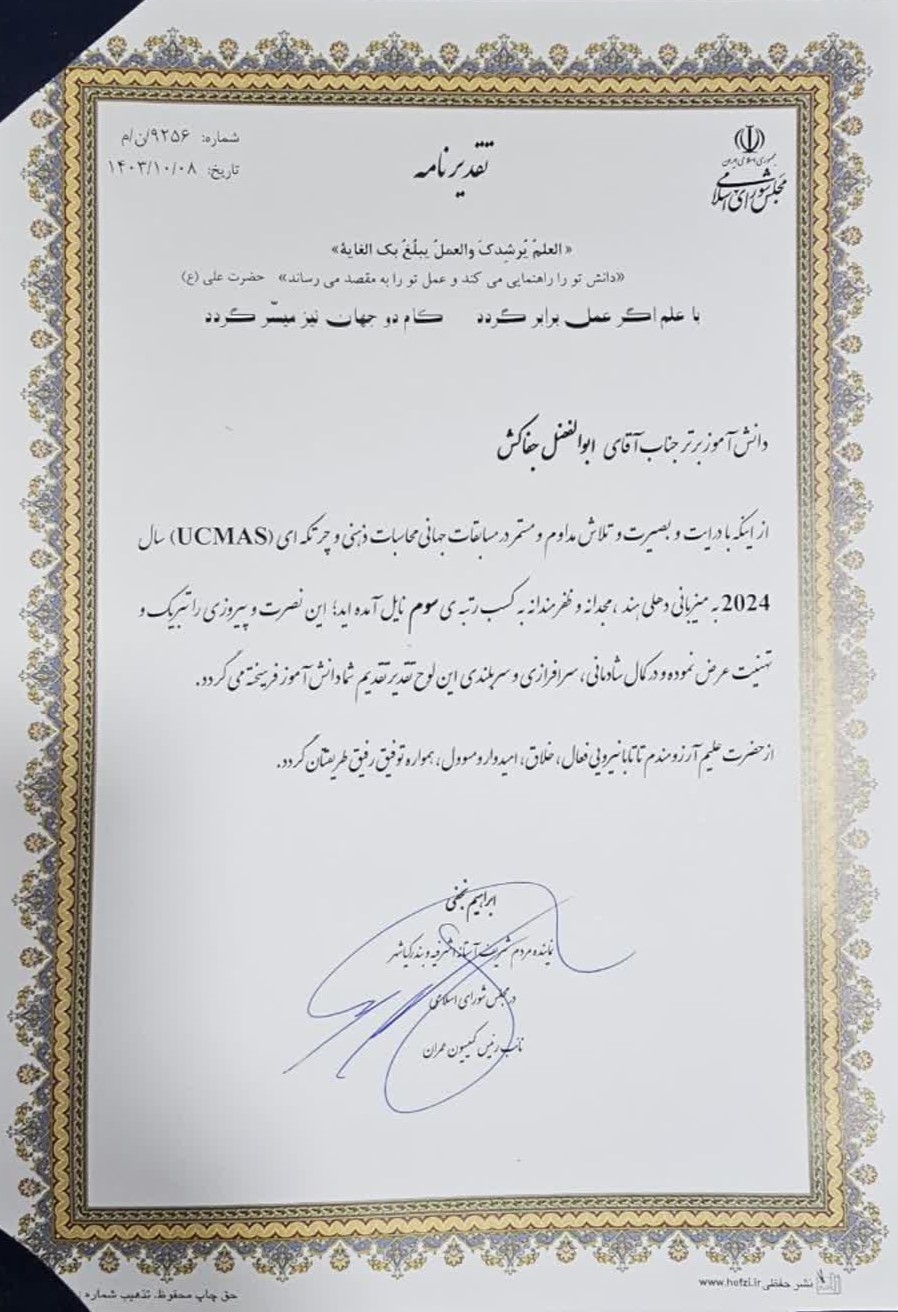 جمهوری اسلامی ایران
مجلس شورای اسلامی
تقدیرنامه
شماره: ۹۲۵۶/ن/م
تاریخ: ۱۴۰۳/۱۰/۰۸
«العلمُ یُرشِدکَ والعملُ یبلُغُ بک الغایة»
«دانش تو را راهنمایی می کند و عمل تو را به مقصد می رساند» حضرت علی (ع)
با علم اگر عمل برابر گردد کام دو جهان نیز میسّر گردد
دانش آموز برتر جناب آقای ابوالفضل جفاکش
از اینکه با درایت و بصیرت و تلاش مداوم و مستمر در مسابقات جهانی محاسبات ذهنی و چرتکه ای (UCMAS) سال
2024 به میزبانی دهلی هند، مجدانه و ظفرمندانه به کسب رتبه ی سوم نایل آمده اید؛ این نصرت و پیروزی را تبریک و
تهنیت عرض نموده و در کمال شادمانی، سرافرازی و سربلندی این لوح تقدیر تقدیم شما دانش آموز فرهیخته می گردد.
از حضرت علیم آرزومندم تا با نیرویی فعال، خلاق، امیدوار و مسوول، همواره توفیق رفیق طریقتان گردد.
ابراهیم نجفی
نماینده مردم شریف آستانه اشرفیه و بندرکیاشهر
در مجلس شورای اسلامی
نائب رئیس کمیسیون عمران
نشر حفظی www.hefzi.ir
حق چاپ محفوظ. تذهیب شماره